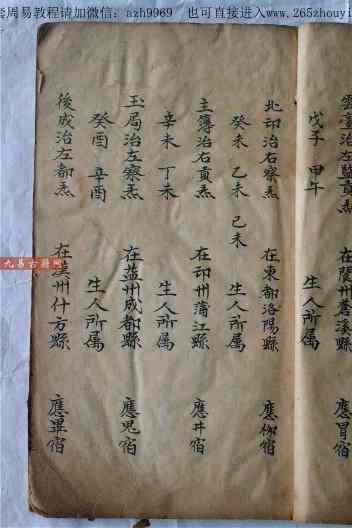 套周易教程请加微信：azh9969 也可直接进入www.265zhouyi
雲臺治左貢炁 在閬州蒼溪縣 應胃宿
戊子 甲午 生人所属
北邙治右察炁 在東都洛陽縣 應柳宿
癸未 乙未 己未 生人所属
主簿治右貢炁 在邛州蒲江縣 應井宿
辛未 丁未 生人所属
玉局治左察炁 在益州成都縣 應鬼宿
癸酉 辛酉 生人所属
後成治左都炁 在漢州什方縣 應畢宿
九易古籍网